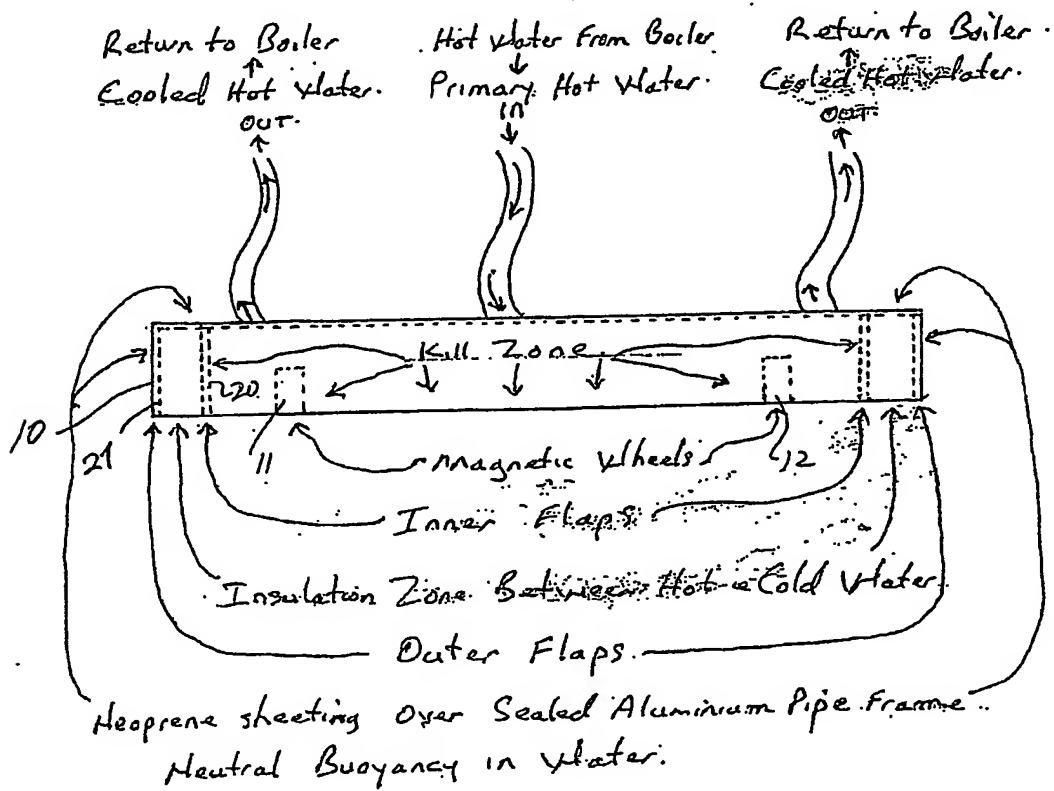 Return to Boiler
Cooled Hot Water.
OUT.
Hot Water From Boiler
Primary Hot Water
in
Return to Boiler.
Cooled Hot Water.
OUT.
Kill Zone
220
10
21
11
Magnetic Wheels
12
Inner Flaps
Insulation Zone Between Hot & Cold Water
Outer Flaps.
Neoprene sheeting Over Sealed Aluminium Pipe Frame..
Neutral Buoyancy in Water.